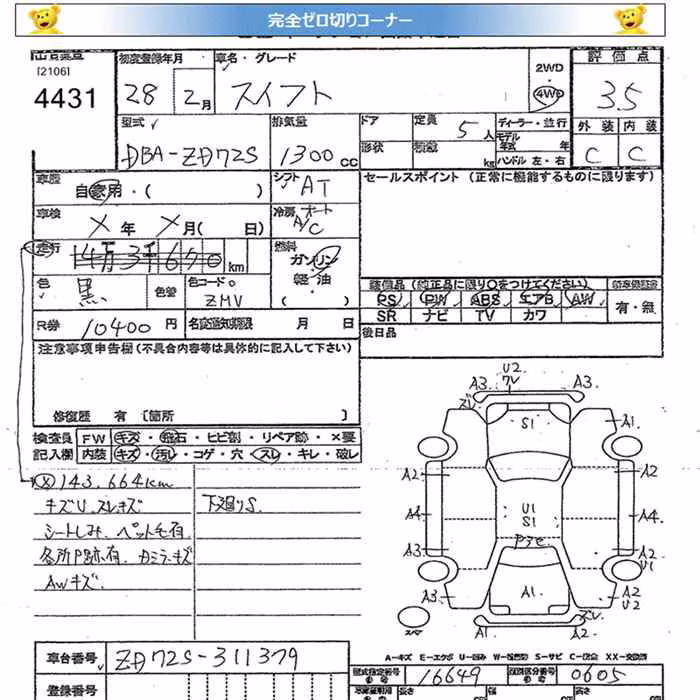 完全ゼロ切りコーナー
[2106]
4431
初度登録年月
28 年 2月
車名・グレード
スイフト
2WD
4WD
評価点
3.5
型式
DBA-ZD72S
排気量
1300 cc
ドア
形状
定員
5人
積載
kg
ディーラー・並行
モデル年式 年
ハンドル 左・右
外装 内装
C C
車歴
自家用・( )
シフト
AT
セールスポイント (正常に機能するものに限ります)
車検
X 年 X 月( 日)
冷房
オート
A/C
走行
14万3千670 km
燃料
ガソリン
軽油
色
黒
色替
色コードo
ZMV
装備品(純正品に限り○をつけてください)
PS PW ABS エアB AW
SR ナビ TV カワ
有・無
R券
10400 円
名変期限 月 日
後日品
注意事項申告欄(不具合内容等は具体的に記入して下さい)
修復歴 有 [箇所 ]
検査員
記入欄
FW キズ・飛石・ヒビ割・リペア跡・×要
内装 キズ・汚レ・コゲ・穴・スレ・キレ・破レ
Ⓧ143,664km
キズU スレキズ
下廻りS.
シートしみ、ペット毛有
各所P跡有、カミラーキズ
AWキズ
U2
A3 ワレ A3
ズレ
S1
A1
A2 A2
A4 U1 A4
S1
アンテ
A3 A2
U1
A3 A1 A2
U2
ズレ
スペア A2 A2
A-キズ E-エクボ U-凹み W-波(修理) S-サビ C-腐食 XX-交換済
車台番号
ZD72S-311379
登録番号
型式指定番号
16649
類別区分番号
0605
長さ
幅
高さ